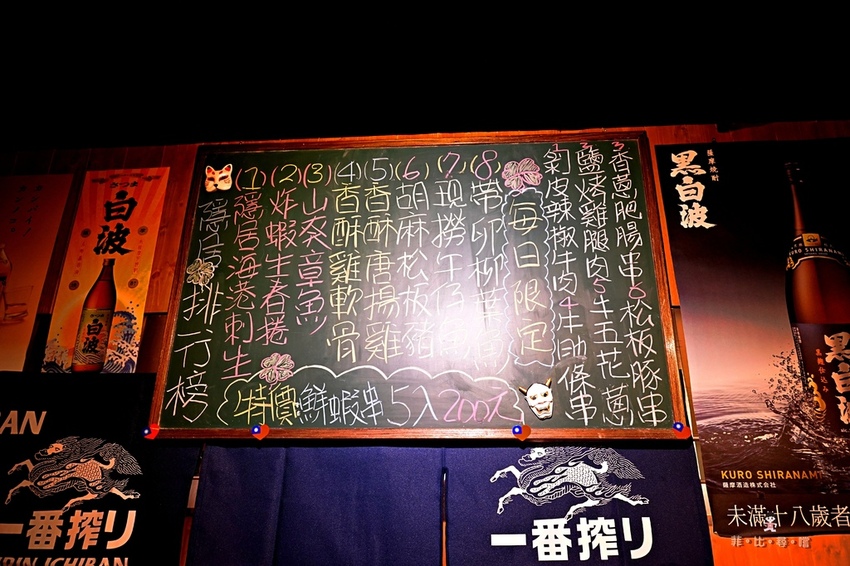 隱居排行榜
(1)隱居海港刺生
(2)炸蝦生春捲
(3)山葵章魚
(4)香酥雞軟骨
(5)香酥唐揚雞
(6)胡麻松板豬
(7)現撈午仔魚
(8)帶卵柳葉魚
每日限定
1剝皮辣椒牛肉4牛肋條串
2鹽烤雞腿肉5牛五花蔥
3香蔥肥腸串6松板豚串
特價鮮蝦串5入200元
白波
白波
薩摩焼酎
黒白波
黒白波
KURO SHIRANAMI
薩摩酒造株式会社
未滿十八歲者
菲•比•尋•嚐
一番搾り
KIRIN ICHIBAN
一番搾り